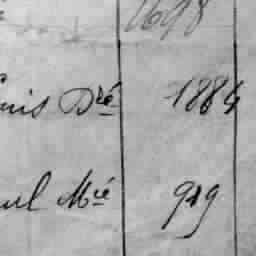 1698
uis Dré 1884
ul Mié 919